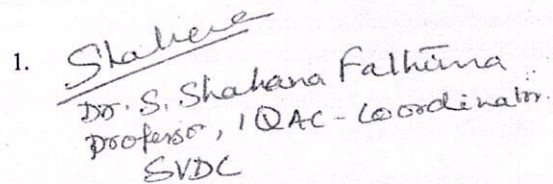 1. Shahana
Dr. S. Shahana Fathima
Professor, IQAC - Coordinator.
SVDC